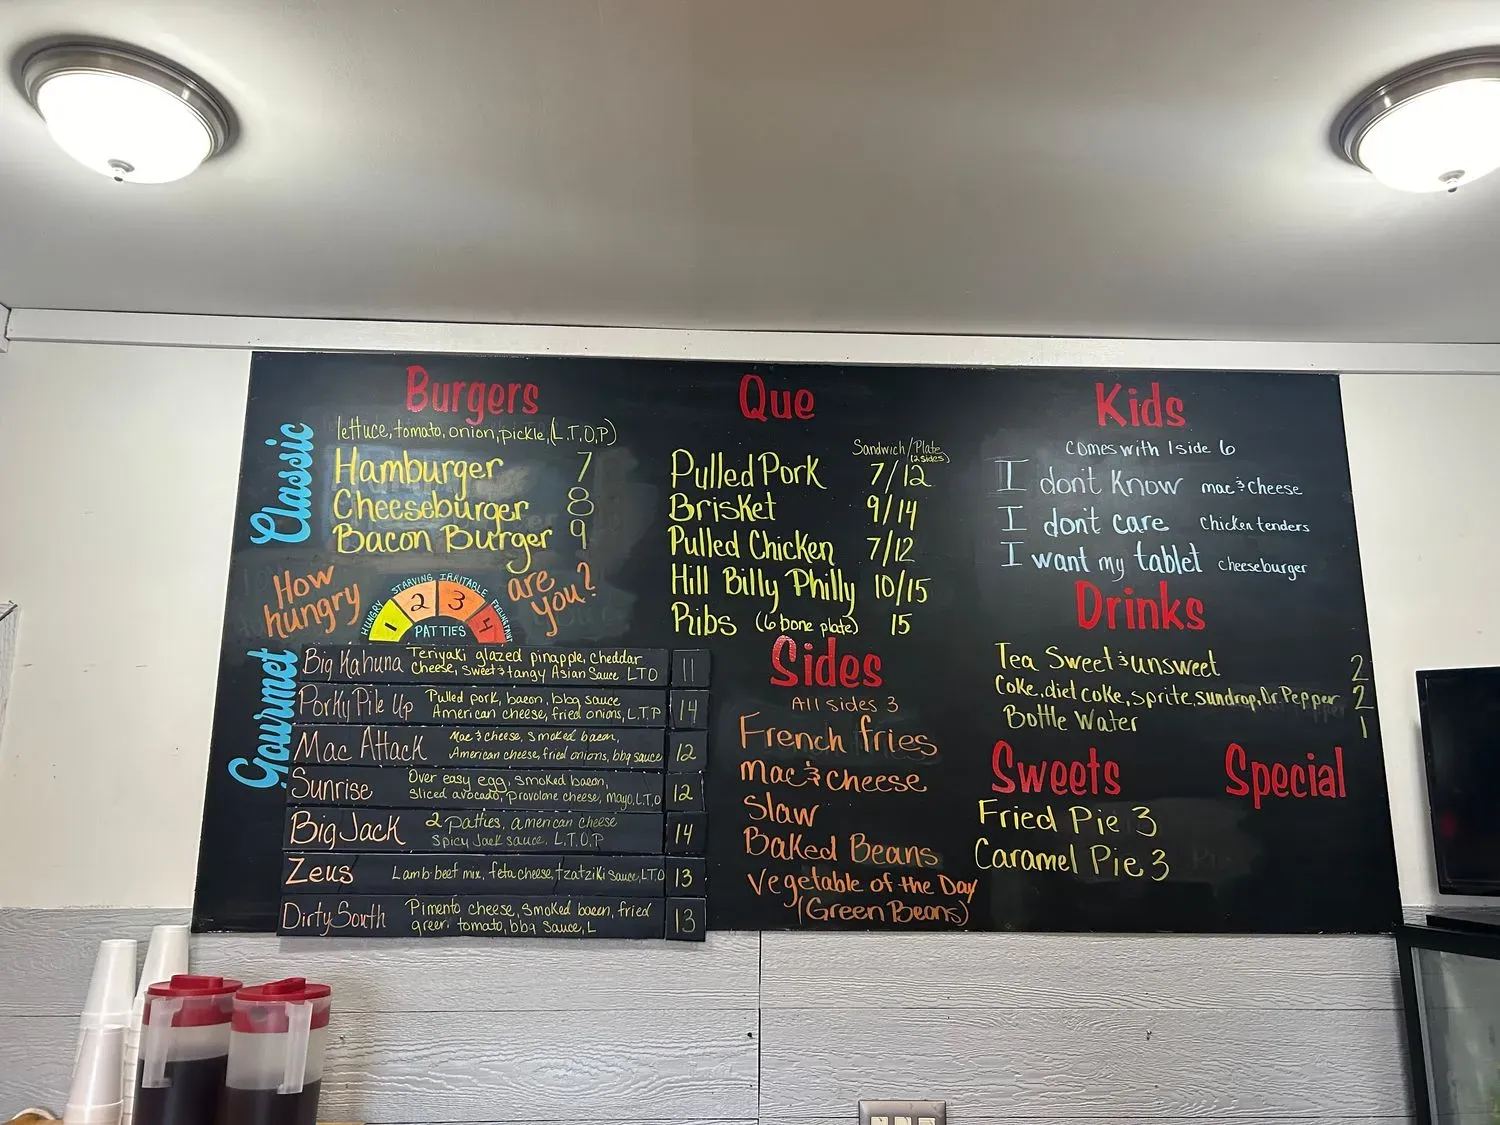 Burgers
Classic
lettuce, tomato, onion, pickle, (L,T,O,P)
Hamburger 7
Cheeseburger 8
Bacon Burger 9
How hungry
are you?
HUNGRY STARVING IRRITABLE
1 2 3 4
PATTIES
Gourmet
Big Kahuna Teriyaki glazed pinapple, cheddar 11
cheese, sweet & tangy Asian Sauce LTO
Porky Pile Up Pulled pork, bacon, bbq sauce 14
American cheese, fried onions, L,T,P
Mac Attack Mac & cheese, smoked bacon, 12
American cheese, fried onions, bbq sauce
Sunrise Over easy egg, smoked bacon, 12
sliced avocado, provolone cheese, mayo, L,T,O
Big Jack 2 patties, american cheese 14
spicy Jack sauce, L,T,O,P
Zeus Lamb-beef mix, feta cheese, tzatziki sauce, LTO 13
Dirty South Pimento cheese, smoked bacon, fried 13
green tomato, bbq sauce, L
Que
Sandwich/Plate
(2 sides)
Pulled Pork 7/12
Brisket 9/14
Pulled Chicken 7/12
Hill Billy Philly 10/15
Ribs (6 bone plate) 15
Sides
All sides 3
French fries
Mac & cheese
Slaw
Baked Beans
Vegetable of the Day
(Green Beans)
Kids
comes with 1 side 6
I dont know mac & cheese
I don't care chicken tenders
I want my tablet cheeseburger
Drinks
Tea Sweet & unsweet 2
Coke, diet coke, sprite, sundrop, Dr Pepper 2
Bottle Water 1
Sweets
Fried Pie 3
Caramel Pie 3
Special